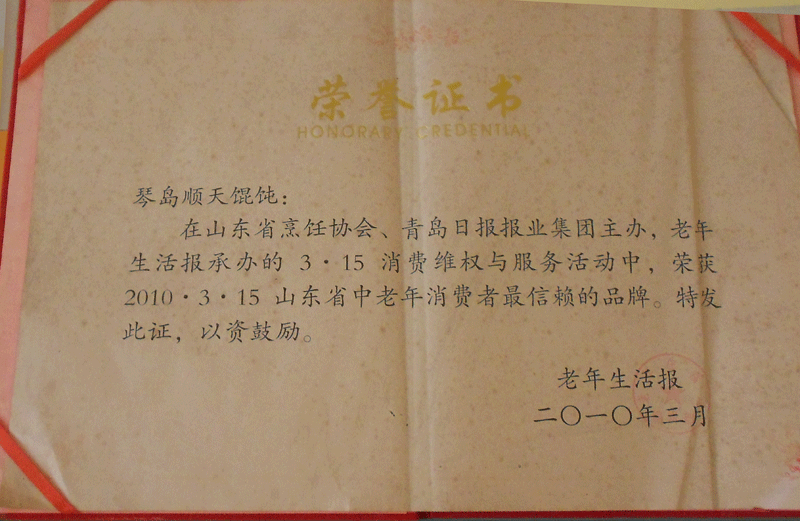 荣誉证书
HONORARY CREDENTIAL
琴岛顺天馄饨：
在山东省烹饪协会、青岛日报报业集团主办，老年
生活报承办的 3·15 消费维权与服务活动中，荣获
2010·3·15 山东省中老年消费者最信赖的品牌。特发
此证，以资鼓励。
老年生活报
二〇一〇年三月